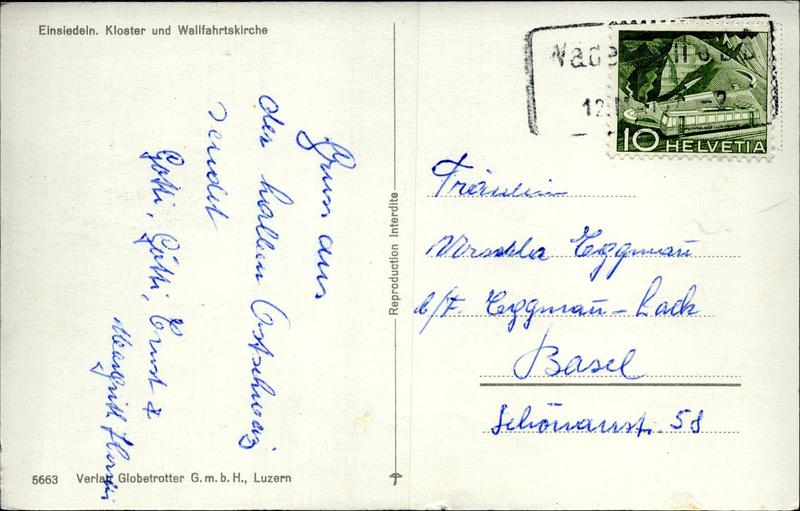 Einsiedeln. Kloster und Wallfahrtskirche
Gruss aus
der halben Ostschweiz
sendet
Götti, Götti, Ernst &
5663 Verlag Globetrotter G.m.b.H., Luzern
Reproduction Interdite
12.
10 HELVETIA
Fräulein
Ursula Eggmann
b/F. Eggmann-Lack
Basel
Schönaustr. 58